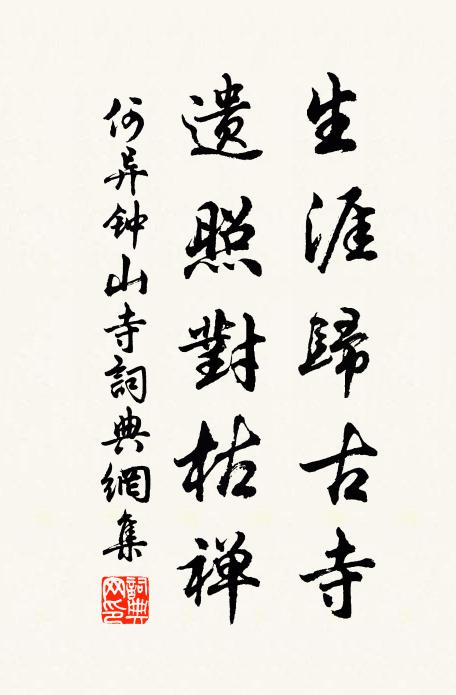 生涯歸古寺
遺照對枯禅
何异钟山寺詞典網集
詞典
网印